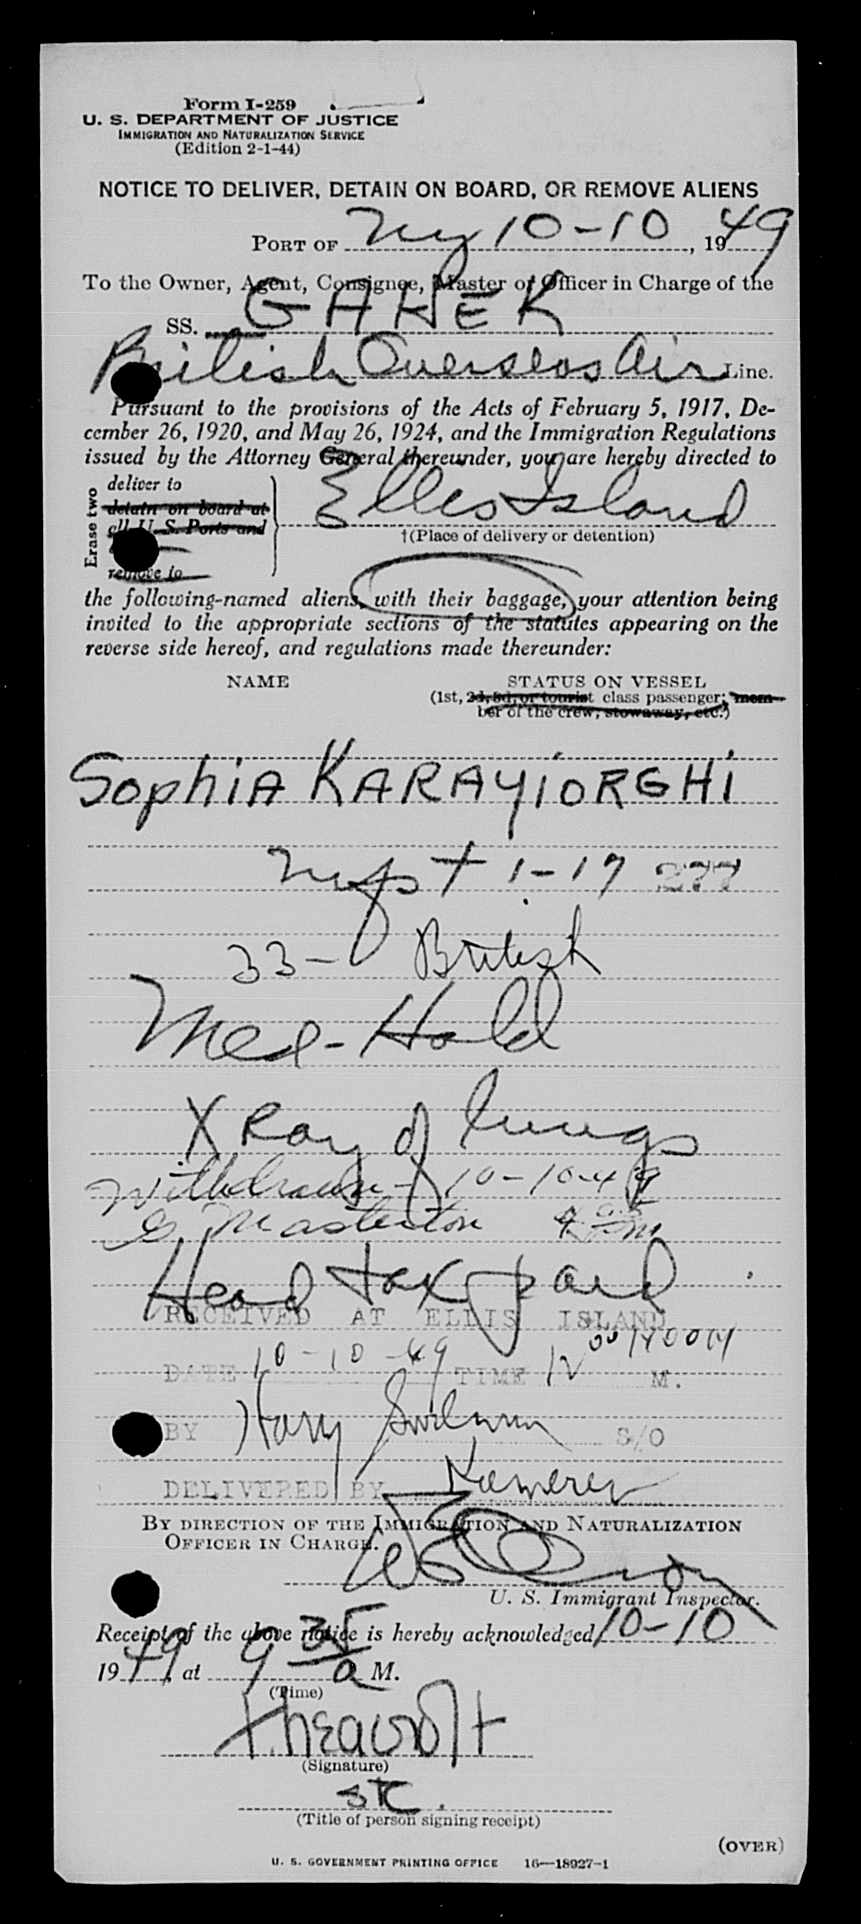 Form I-259
U. S. DEPARTMENT OF JUSTICE
IMMIGRATION AND NATURALIZATION SERVICE
(Edition 2-1-44)
NOTICE TO DELIVER, DETAIN ON BOARD, OR REMOVE ALIENS
PORT OF NY 10-10, 1949
To the Owner, Agent, Consignee, Master or Officer in Charge of the
SS. GAHEK
British Overseas Air Line.
Pursuant to the provisions of the Acts of February 5, 1917, De-
cember 26, 1920, and May 26, 1924, and the Immigration Regulations
issued by the Attorney General thereunder, you are hereby directed to
Erase two
deliver to
detain on board at
all U. S. Ports and
remove to
Ellis Island
†(Place of delivery or detention)
the following-named aliens, with their baggage, your attention being
invited to the appropriate sections of the statutes appearing on the
reverse side hereof, and regulations made thereunder:
NAME STATUS ON VESSEL
(1st, 2d, 3d, or tourist class passenger; mem-
ber of the crew, stowaway, etc.)
Sophia KARAYIORGHI
1-17 277
33- British
Med-Hold
X Ray of lungs
Withdrawn - 10-10-49
G. Masterton
Head tax paid
RECEIVED AT ELLIS ISLAND
DATE 10-10-49 TIME 12 00 Noon M.
BY Harry S/O
DELIVERED BY
BY DIRECTION OF THE IMMIGRATION AND NATURALIZATION
OFFICER IN CHARGE.
U. S. Immigrant Inspector.
Receipt of the above notice is hereby acknowledged 10-10
1949 at 9 35 a M.
(Time)
(Signature)
STC.
(Title of person signing receipt)
(OVER)
U. S. GOVERNMENT PRINTING OFFICE 16—18927-1